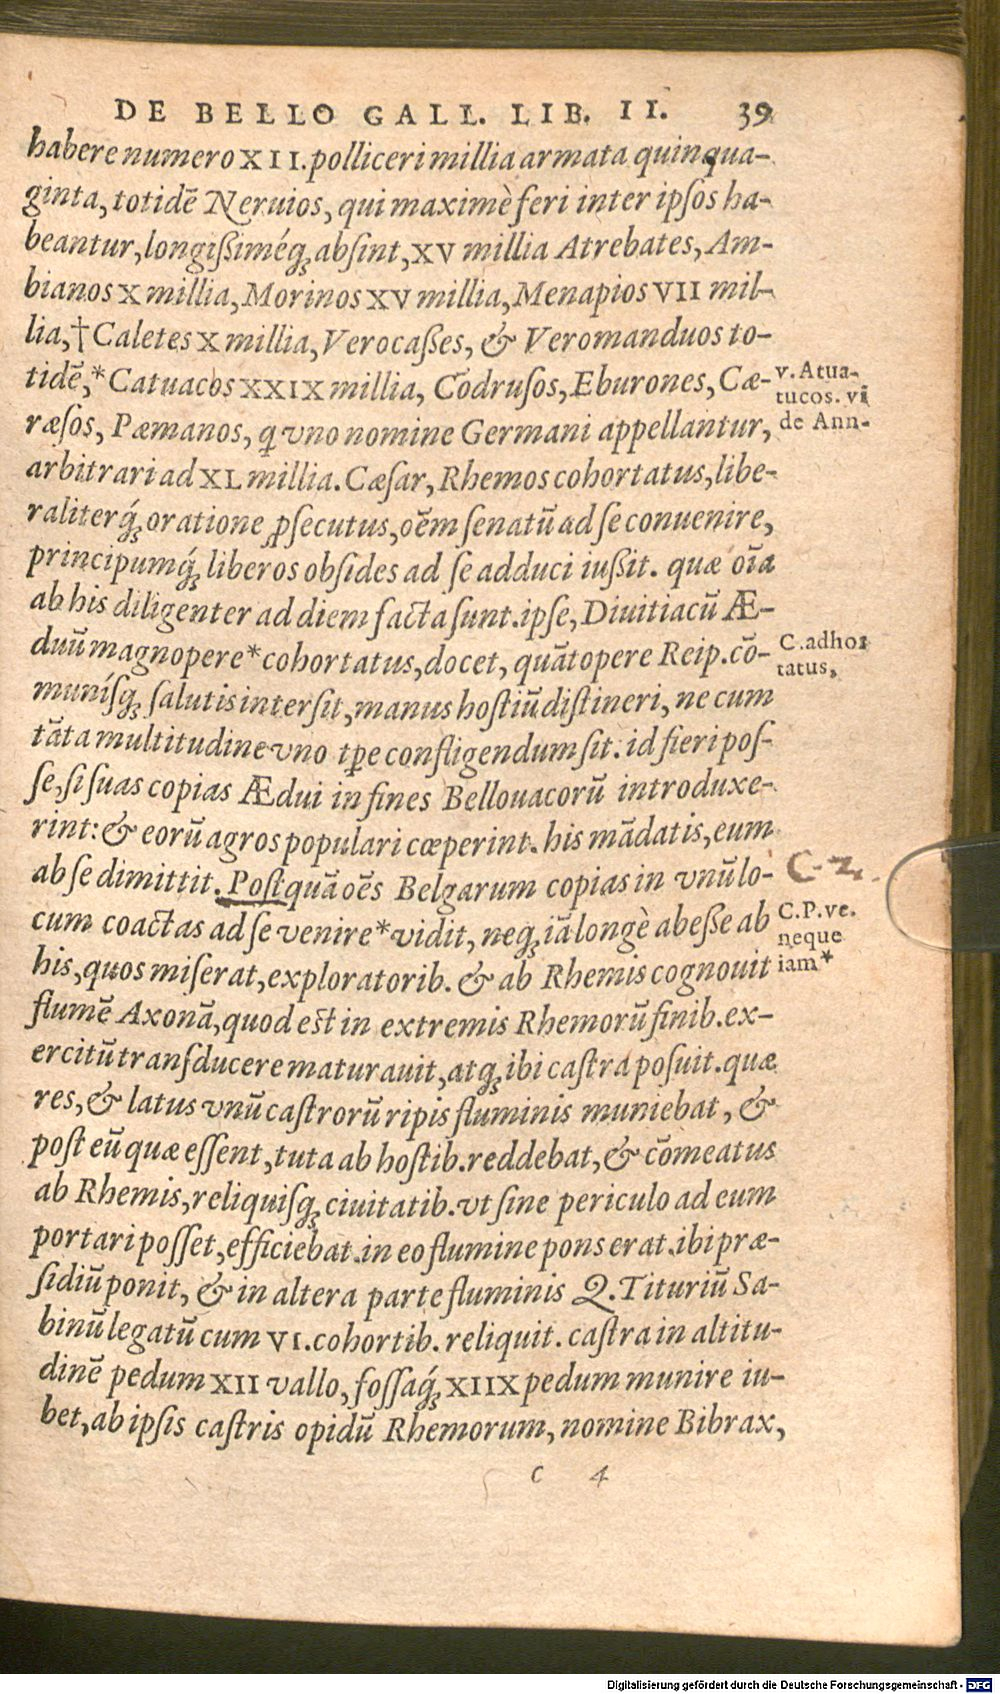 DE BELLO GALL. LIB. II. 39
habere numero XII. polliceri millia armata quinqua-
ginta, totidē Neruios, qui maximè feri inter ipſos ha-
beantur, longißiméq́; abſint, XV millia Atrebates, Am-
bianos X millia, Morinos XV millia, Menapios VII mil-
lia, †Caletes X millia, Verocaßes, & Veromanduos to-
tidē, *Catuacos XXIX millia, Cōdruſos, Eburones, Cæ-
ræſos, Pæmanos, q̄ vno nomine Germani appellantur,
arbitrari ad XL millia. Cæſar, Rhemos cohortatus, libe-
raliterq́; oratione ꝓſecutus, oēm ſenatū ad ſe conuenire,
principumq́; liberos obſides ad ſe adduci iußit. quæ oīa
ab his diligenter ad diem facta ſunt. ipſe, Diuitiacū Æ-
duū magnopere *cohortatus, docet, quātopere Reip. cō-
muníſq; ſalutis interſit, manus hoſtiū diſtineri, ne cum
tāta multitudine vno tꝑe confligendum ſit. id fieri poſ-
ſe, ſi ſuas copias Ædui in fines Bellouacorū introduxe-
rint: & eorū agros populari cœperint. his mādatis, eum
ab ſe dimittit. Poſtquā oēs Belgarum copias in vnū lo-
cum coactas ad ſe venire *vidit, neq; iā longè abeſſe ab
his, quos miſerat, exploratorib. & ab Rhemis cognouit
flumē Axonā, quod eſt in extremis Rhemorū finib. ex-
ercitū tranſducere maturauit, atq; ibi caſtra poſuit. quæ
res, & latus vnū caſtrorū ripis fluminis muniebat, &
poſt eū quæ eſſent, tuta ab hoſtib. reddebat, & cōmeatus
ab Rhemis, reliquiſq; ciuitatib. vt ſine periculo ad eum
portari poſſet, efficiebat. in eo flumine pons erat. ibi præ-
ſidiū ponit, & in altera parte fluminis Q. Titurīu Sa-
binū legatū cum VI. cohortib. reliquit. caſtra in altitu-
dinē pedum XII vallo, foſſaq́; XIIX pedum munire iu-
bet, ab ipſis caſtris opidū Rhemorum, nomine Bibrax,
c 4
v. Atua-
tucos. vi
de Ann-
C. adhor
tatus,
C. 2.
C.P. ve.
neque
iam*
Digitalisierung gefördert durch die Deutsche Forschungsgemeinschaft - DFG